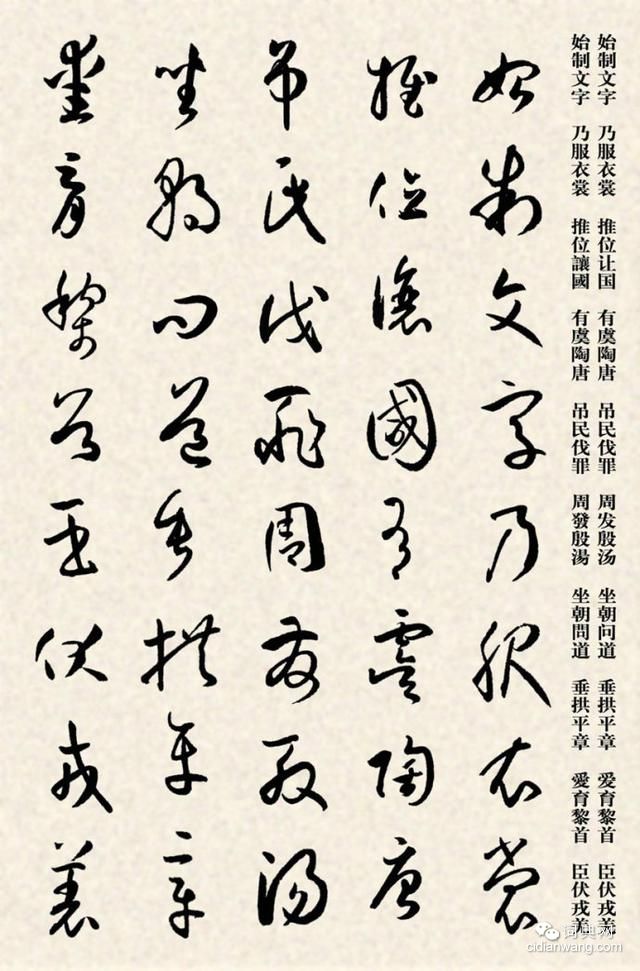 始制文字 乃服衣裳 推位让国 有虞陶唐 吊民伐罪 周发殷汤 坐朝问道 垂拱平章 爱育黎首 臣伏戎羌
始制文字 乃服衣裳 推位讓國 有虞陶唐 吊民伐罪 周發殷湯 坐朝問道 垂拱平章 愛育黎首 臣伏戎羌
始制文字乃服衣裳
推位讓國有虞陶唐
吊民伐罪周發殷湯
坐朝問道垂拱平章
愛育黎首臣伏戎羌
词典网
cidianwang.com